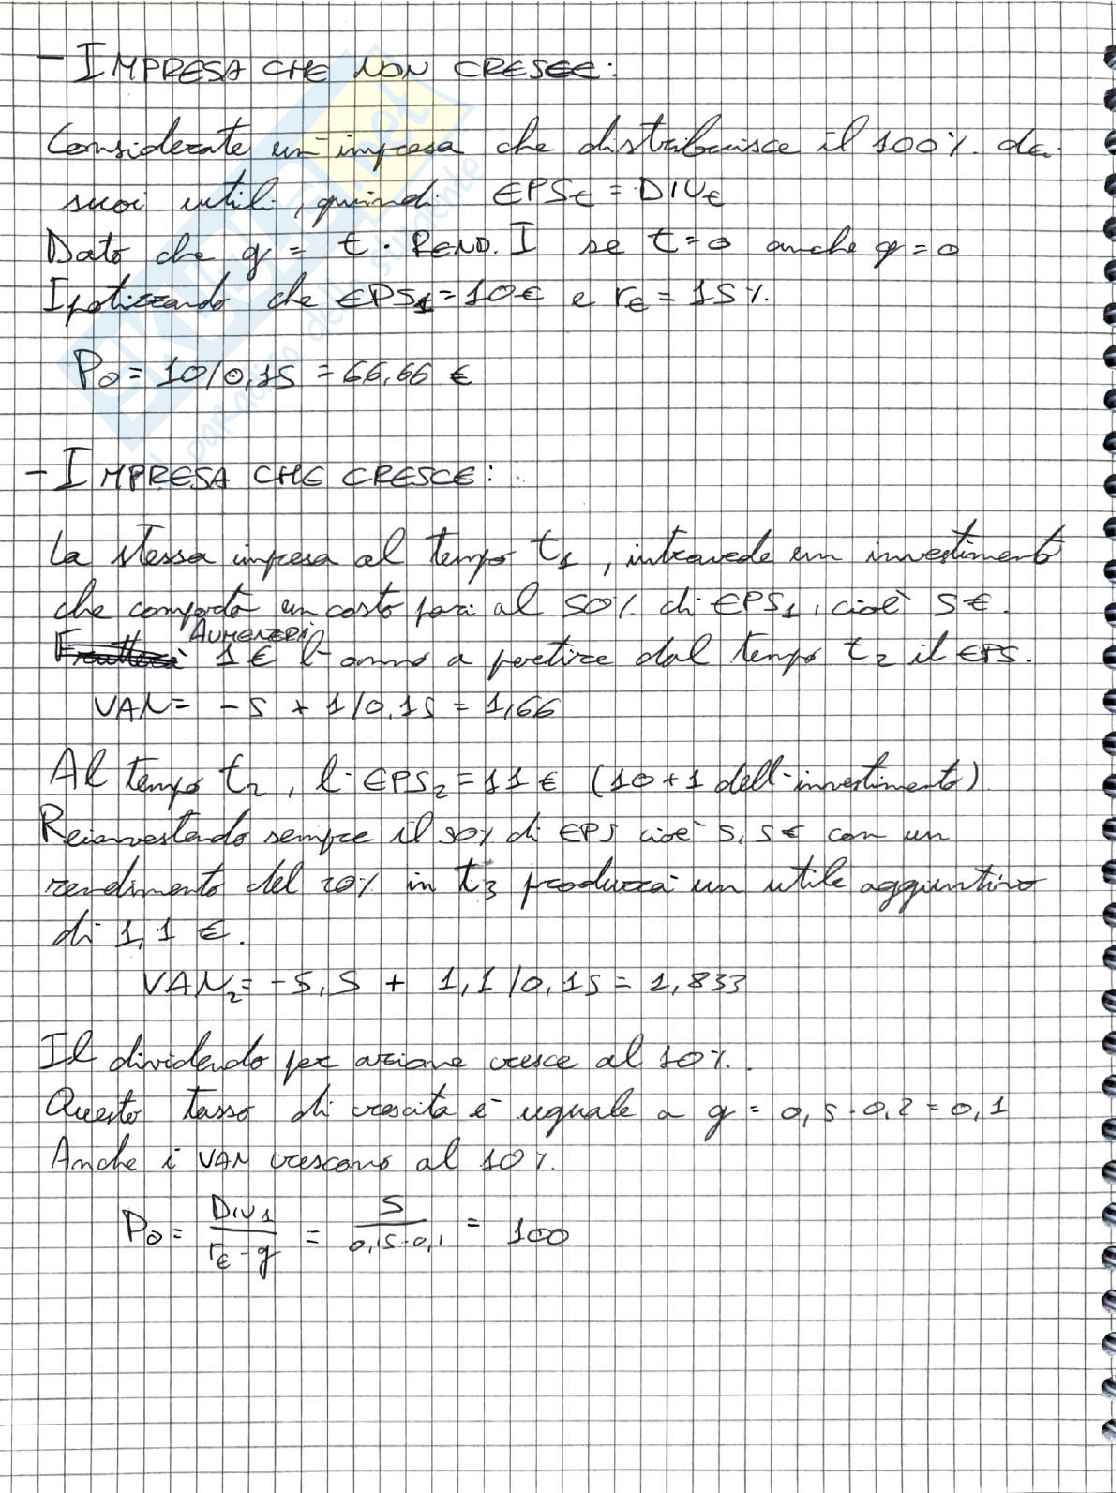 - IMPRESA CHE NON CRESCE:
Considerate un'impresa che distribuisce il 100% dei
suoi utili, quindi EPSt = DIVt
Dato che g = t · REND. I se t=0 anche g=0
Ipotizzando che EPS1 = 10€ e rE = 15%
P0 = 10/0,15 = 66,66 €
- IMPRESA CHE CRESCE:
La stessa impresa al tempo t1, intravede un investimento
che comporta un costo pari al 50% di EPS1, cioè 5€.
AUMENTERÀ
Frutterà 1€ l'anno a partire dal tempo t2 il EPS.
VAN = -5 + 1/0,15 = 1,66
Al tempo t2, l'EPS2 = 11€ (10+1 dell'investimento)
Reinvestendo sempre il 50% di EPS cioè 5,5€ con un
rendimento del 20% in t3 produrrà un utile aggiuntivo
di 1,1 €.
VAN2 = -5,5 + 1,1/0,15 = 1,833
Il dividendo per azione cresce al 10%.
Questo tasso di crescita è uguale a g = 0,5·0,2 = 0,1
Anche i VAN crescono al 10%.
P0 = DIV1 / rE - g = 5 / 0,15-0,1 = 100